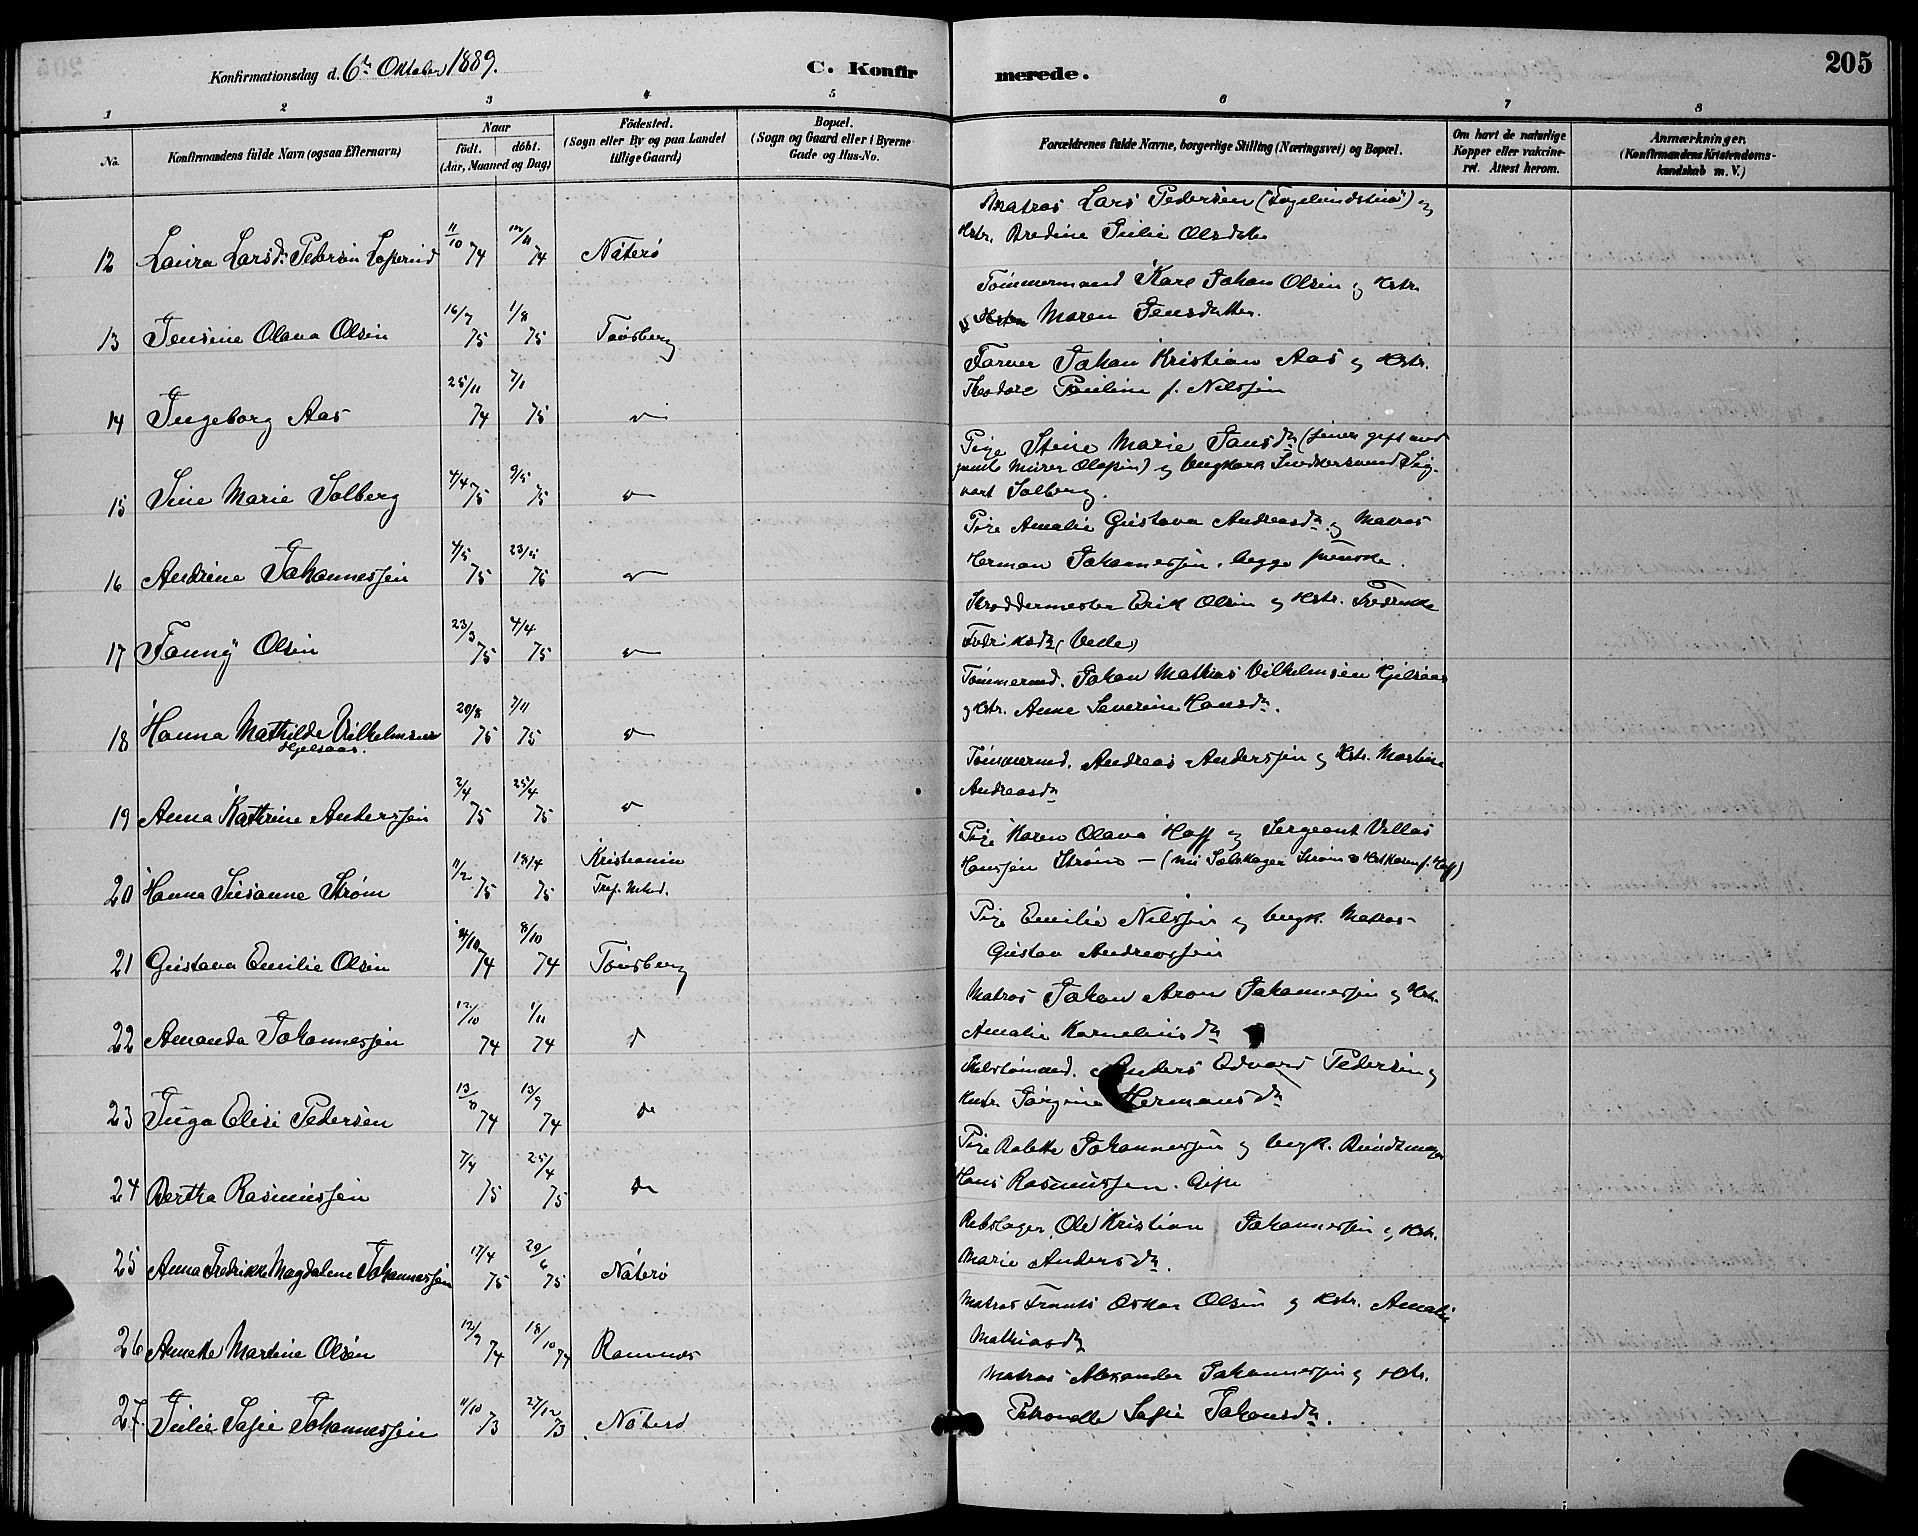 205
Konfirmationsdag d. 6te Oktober 1889.
C. Konfirmerede.
1 2 3 4 5 6 7 8
No.
Konfirmandens fulde Navn (ogsaa Efternavn)
Naar
født. døbt.
(Aar, Maaned og Dag)
Födested.
(Sogn eller By og paa Landet
tillige Gaard)
Bopæl.
(Sogn og Gaard eller i Byerne
Gade og Hus-No.
Forældrenes fulde Navne, borgerlige Stilling (Næringsvei) og Bopæl.
Om havt de naturlige
Kopper eller vakcine-
ret. Attest herom.
Anmærkninger.
(Konfirmandens Kristendoms-
kundskab m. V.)
12 Laura Larsd. Pedersen 11/10 74 74 Nøterø
Matros Lars Pedersen og
Hstr. Bredine Julie Olsdatter
13 Jensine Olava Olsen 16/7 75 1/8 75 Tønsberg
Tømmermand Karl Johan Olsen og Hstr.
Maren Jensdatter.
14 Ingeborg Aas 25/11 74 7/1 75
Farver Johan Kristian Aas og Hstr.
Theodore Pauline f. Nilssen
15 Sine Marie Solberg 4/4 75 9/5 75
Pige Stine Marie Jansd. (senere gift med
Murer Olassen) og Ungkarl Snedkersvend Sig-
vart Solberg.
16 Andrine Johannessen 4/5 75 75
Pige Amalie Gustava Andreasd. og Matros
Herman Johannessen, begge svenske.
17 Fanny Olsen 23/3 75 4/4 75
Skreddermester Erik Olsen og Hstr. Fredrikke
Fredriksd. (Velle)
18 Hanna Mathilde Vilhelmsen 20/8 75 7/11 75
Hjelsaas.
Tømmermd. Johan Mathias Vilhelmsen Hjelsaas
og Hstr. Anne Severine Hansd.
19 Anna Kathrine Anderssen 2/4 75 25/4 75
Tømmermd. Andreas Anderssen og Hstr. Martine
Andreasd.
20 Hanna Susanne Strøm 11/2 75 18/4 75 Kristiania
Tref. Mhd.
Pige Karen Olava Hoff og Sergeant Villas
Hanssen Strøm – (nu Salmager Strøm og Hst Karen f. Hoff)
21 Gustava Emilie Olsen 74 8/10 74 Tønsberg
Pige Emilie Nilssen og Ungk. Matros
Gustav Andreassen
22 Amanda Johannessen 12/10 74 1/11 74 d
Matros Johan Aron Johannessen og Hstr.
Amalie Korneliusd.
23 Inga Elise Pedersen 74 13/9 74 do
Anders Edvard Pedersen og
Hustr. Jørgine Hermansd.
24 Bertha Rasmussen 7/4 75 25/4 75 do
Pige Bolette Johannessen og Ungk. Bundtmager
Hans Rasmussen.
25 Anna Fredrikke Magdalene Johannessen 17/4 75 20/6 75 Nøterø
Rebslager Ole Kristian Johannessen og Hstr.
Marie Andersd.
26 Anette Martine Olsen 12/9 74 18/10 74 Ramnæs
Matros Frants Oskar Olsen og Hstr. Amalie
Mathiasd.
27. Julie Sofie Johannessen 11/10 73 27/12 73 Nøterø
Matros Alexander Johannessen og Hstr.
Petronelle Sofie Johansd.